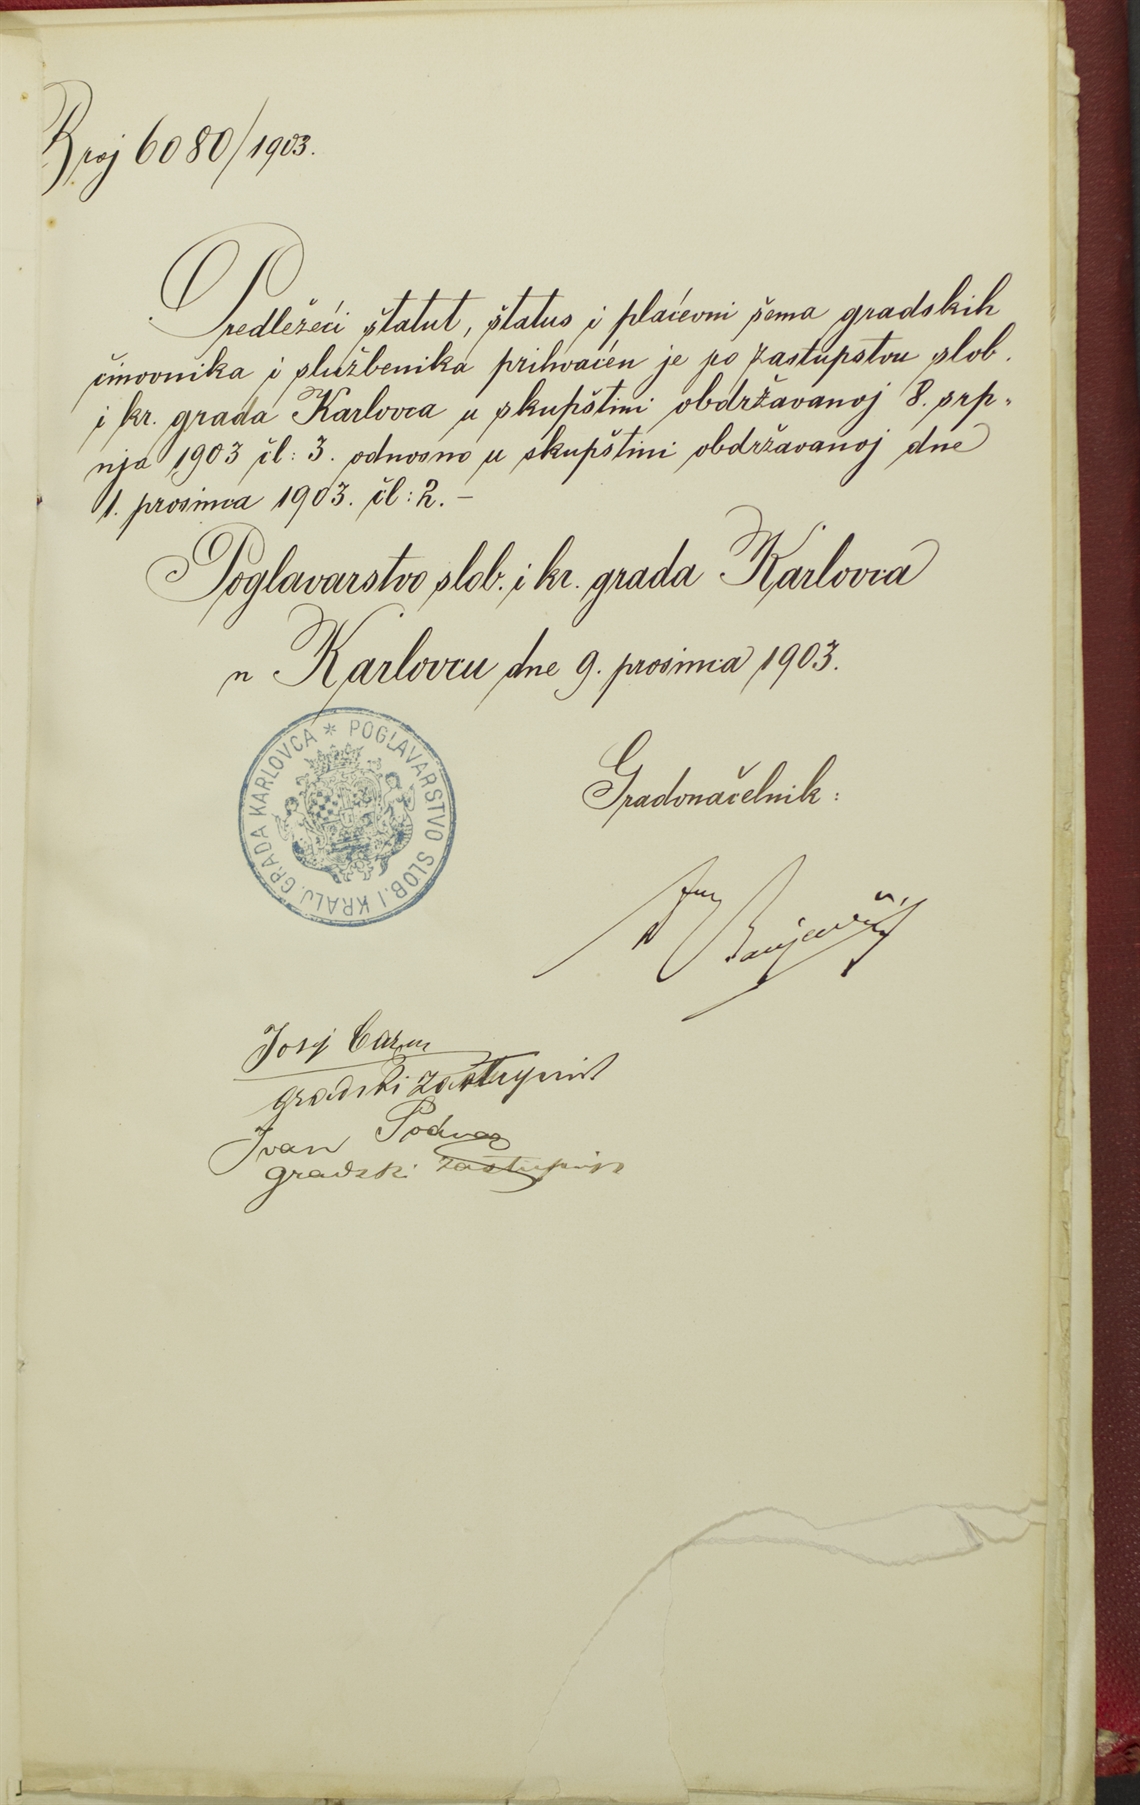 Broj 6080/1903.
Predležeći štatut, štatus i plaćevni šema gradskih
činovnika i službenika prihvaćen je po zastupstvu slob.
i kr. grada Karlovca u skupštini obdržavanoj 8. srp-
nja 1903 čl: 3. odnosno u skupštini obdržavanoj dne
1. prosinca 1903. čl: 2. -
Poglavarstvo slob. i kr. grada Karlovca
u Karlovcu dne 9. prosinca 1903.
POGLAVARSTVO SLOB. I KRALJ. GRADA KARLOVCA *
Gradonačelnik:
Banjavčić
Josip
gradski zastupnik
Ivan
gradski zastupnik